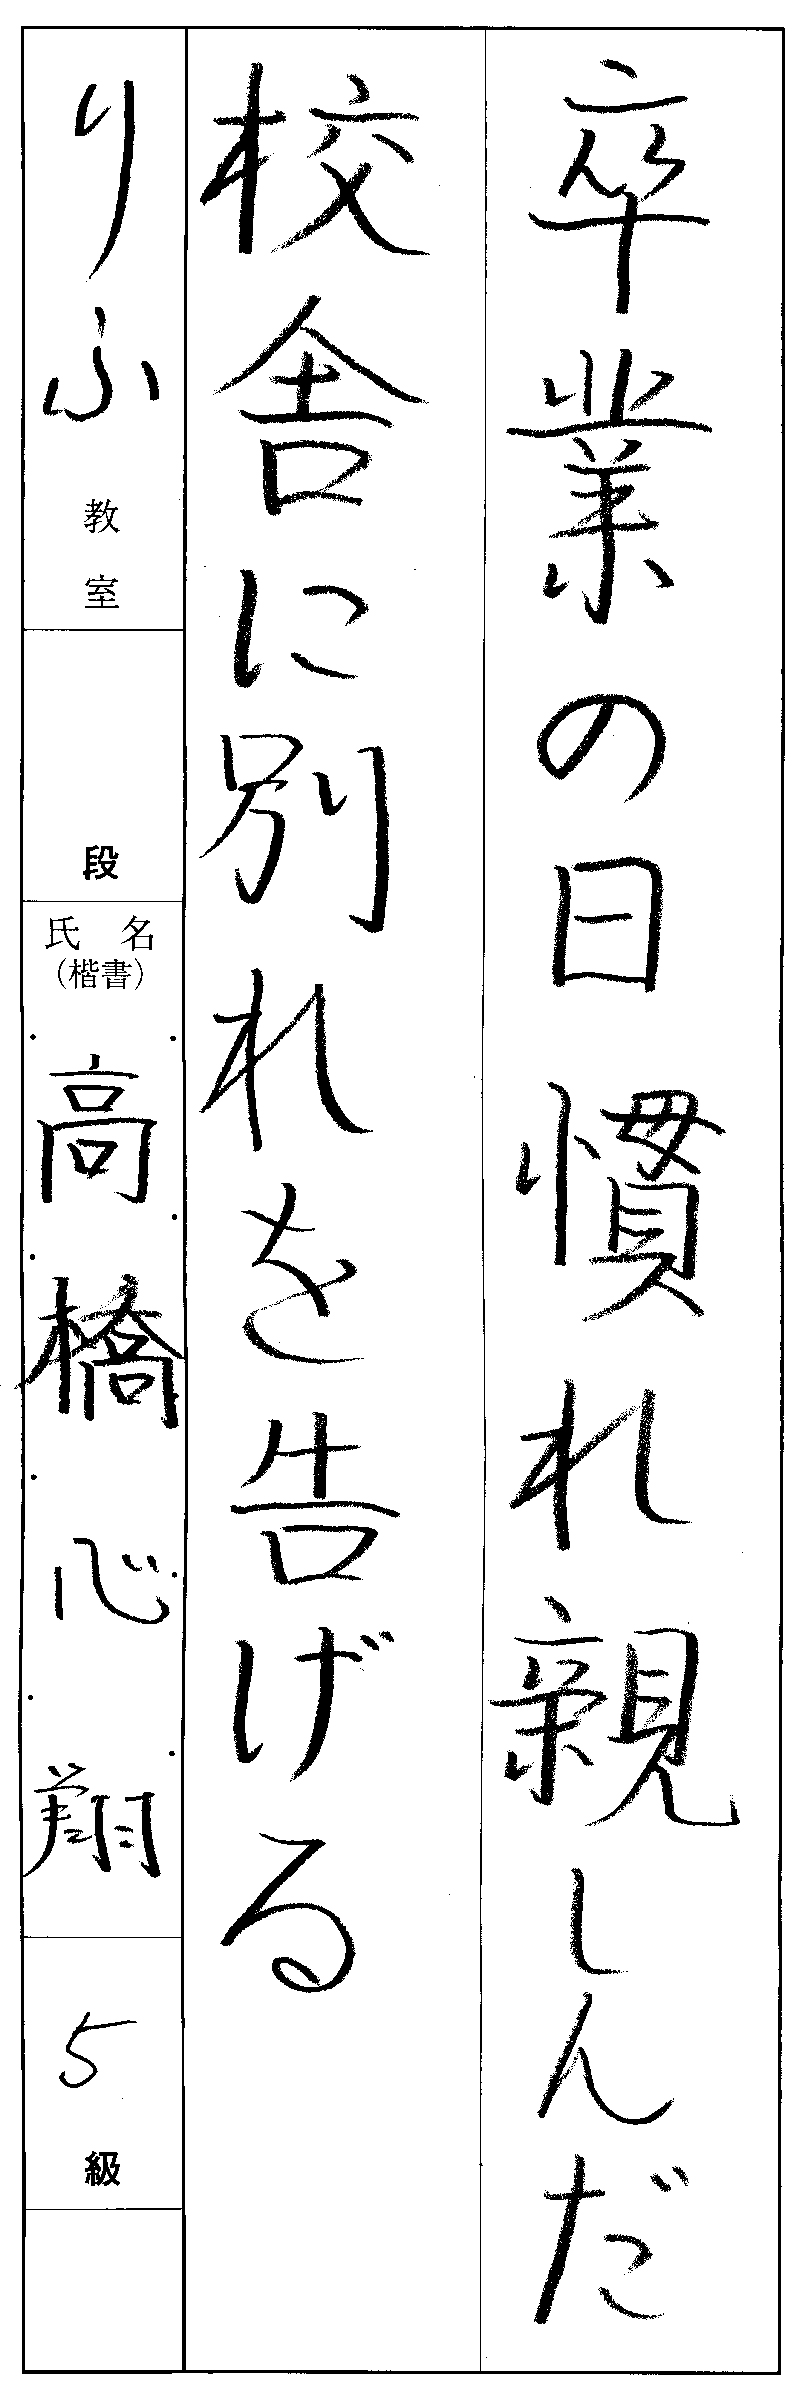 卒業の日慣れ親しんだ
校舎に別れを告げる
りふ教室
段
氏名
(楷書)
高橋心翔
5級